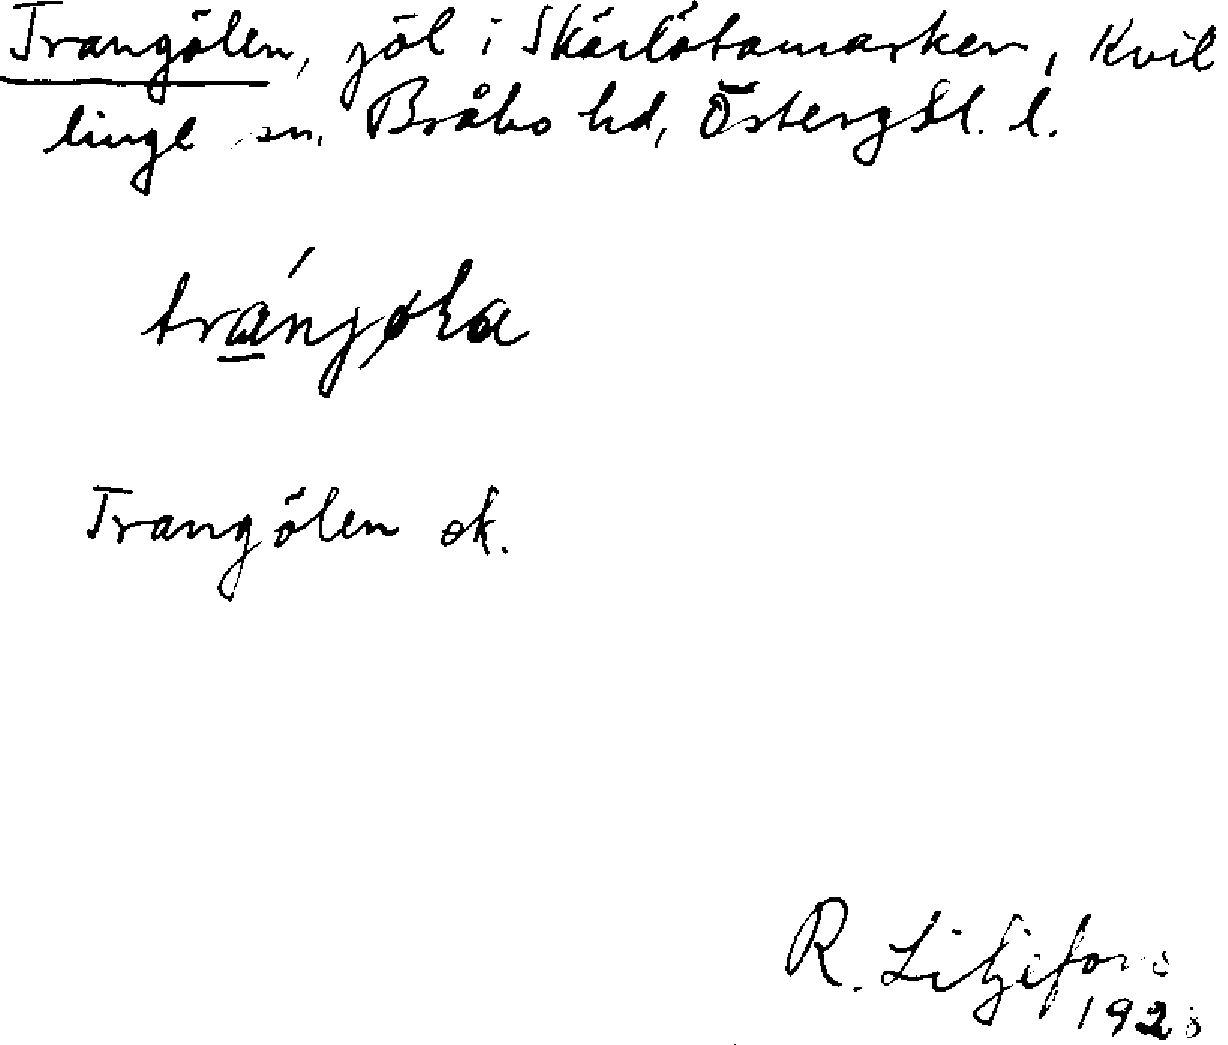 Trangölen, jöl i Skärlötamarken, Kvil
linge sn. Bråbo hd, Östergötl. l.
tránjøla
Trangölen ek.
R. Liljefors